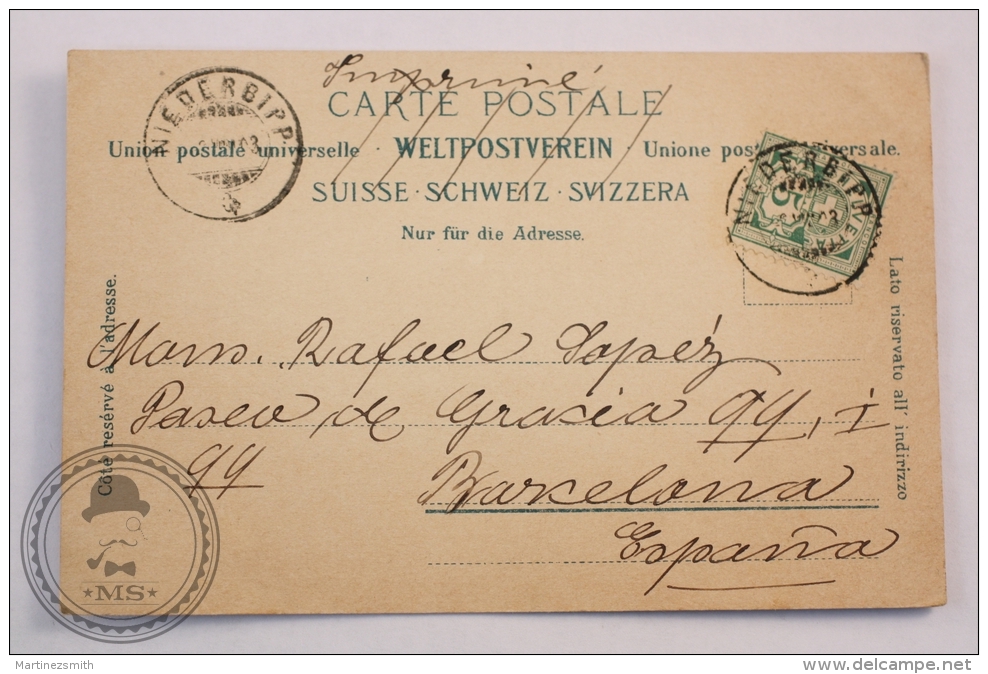 Imprimé
CARTE POSTALE
Union postale universelle · WELTPOSTVEREIN · Unione postale universale.
SUISSE · SCHWEIZ · SVIZZERA
Nur für die Adresse.
NIEDERBIPP
NIEDERBIPP
5
Côté resérvé à l'adresse.
Lato riservato all' indirizzo
Mons. Rafael Lopéz
Paseo de Gracia 99, I
99 Barcelona
España
MS
Martinezsmith
www.delcampe.net